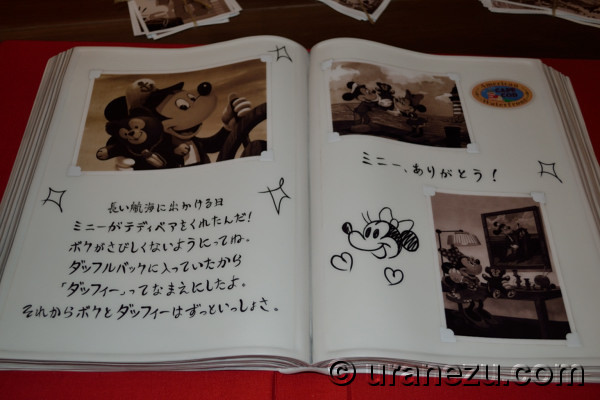 長い航海に出かける日
ミニーがテディベアをくれたんだ!
ボクがさびしくないようにってね。
ダッフルバックに入っていたから
「ダッフィー」ってなまえにしたよ。
それからボクとダッフィーはずっといっしょさ。
American
CAPE COD
Waterfront
ミニー、ありがとう!
© uranezu.com